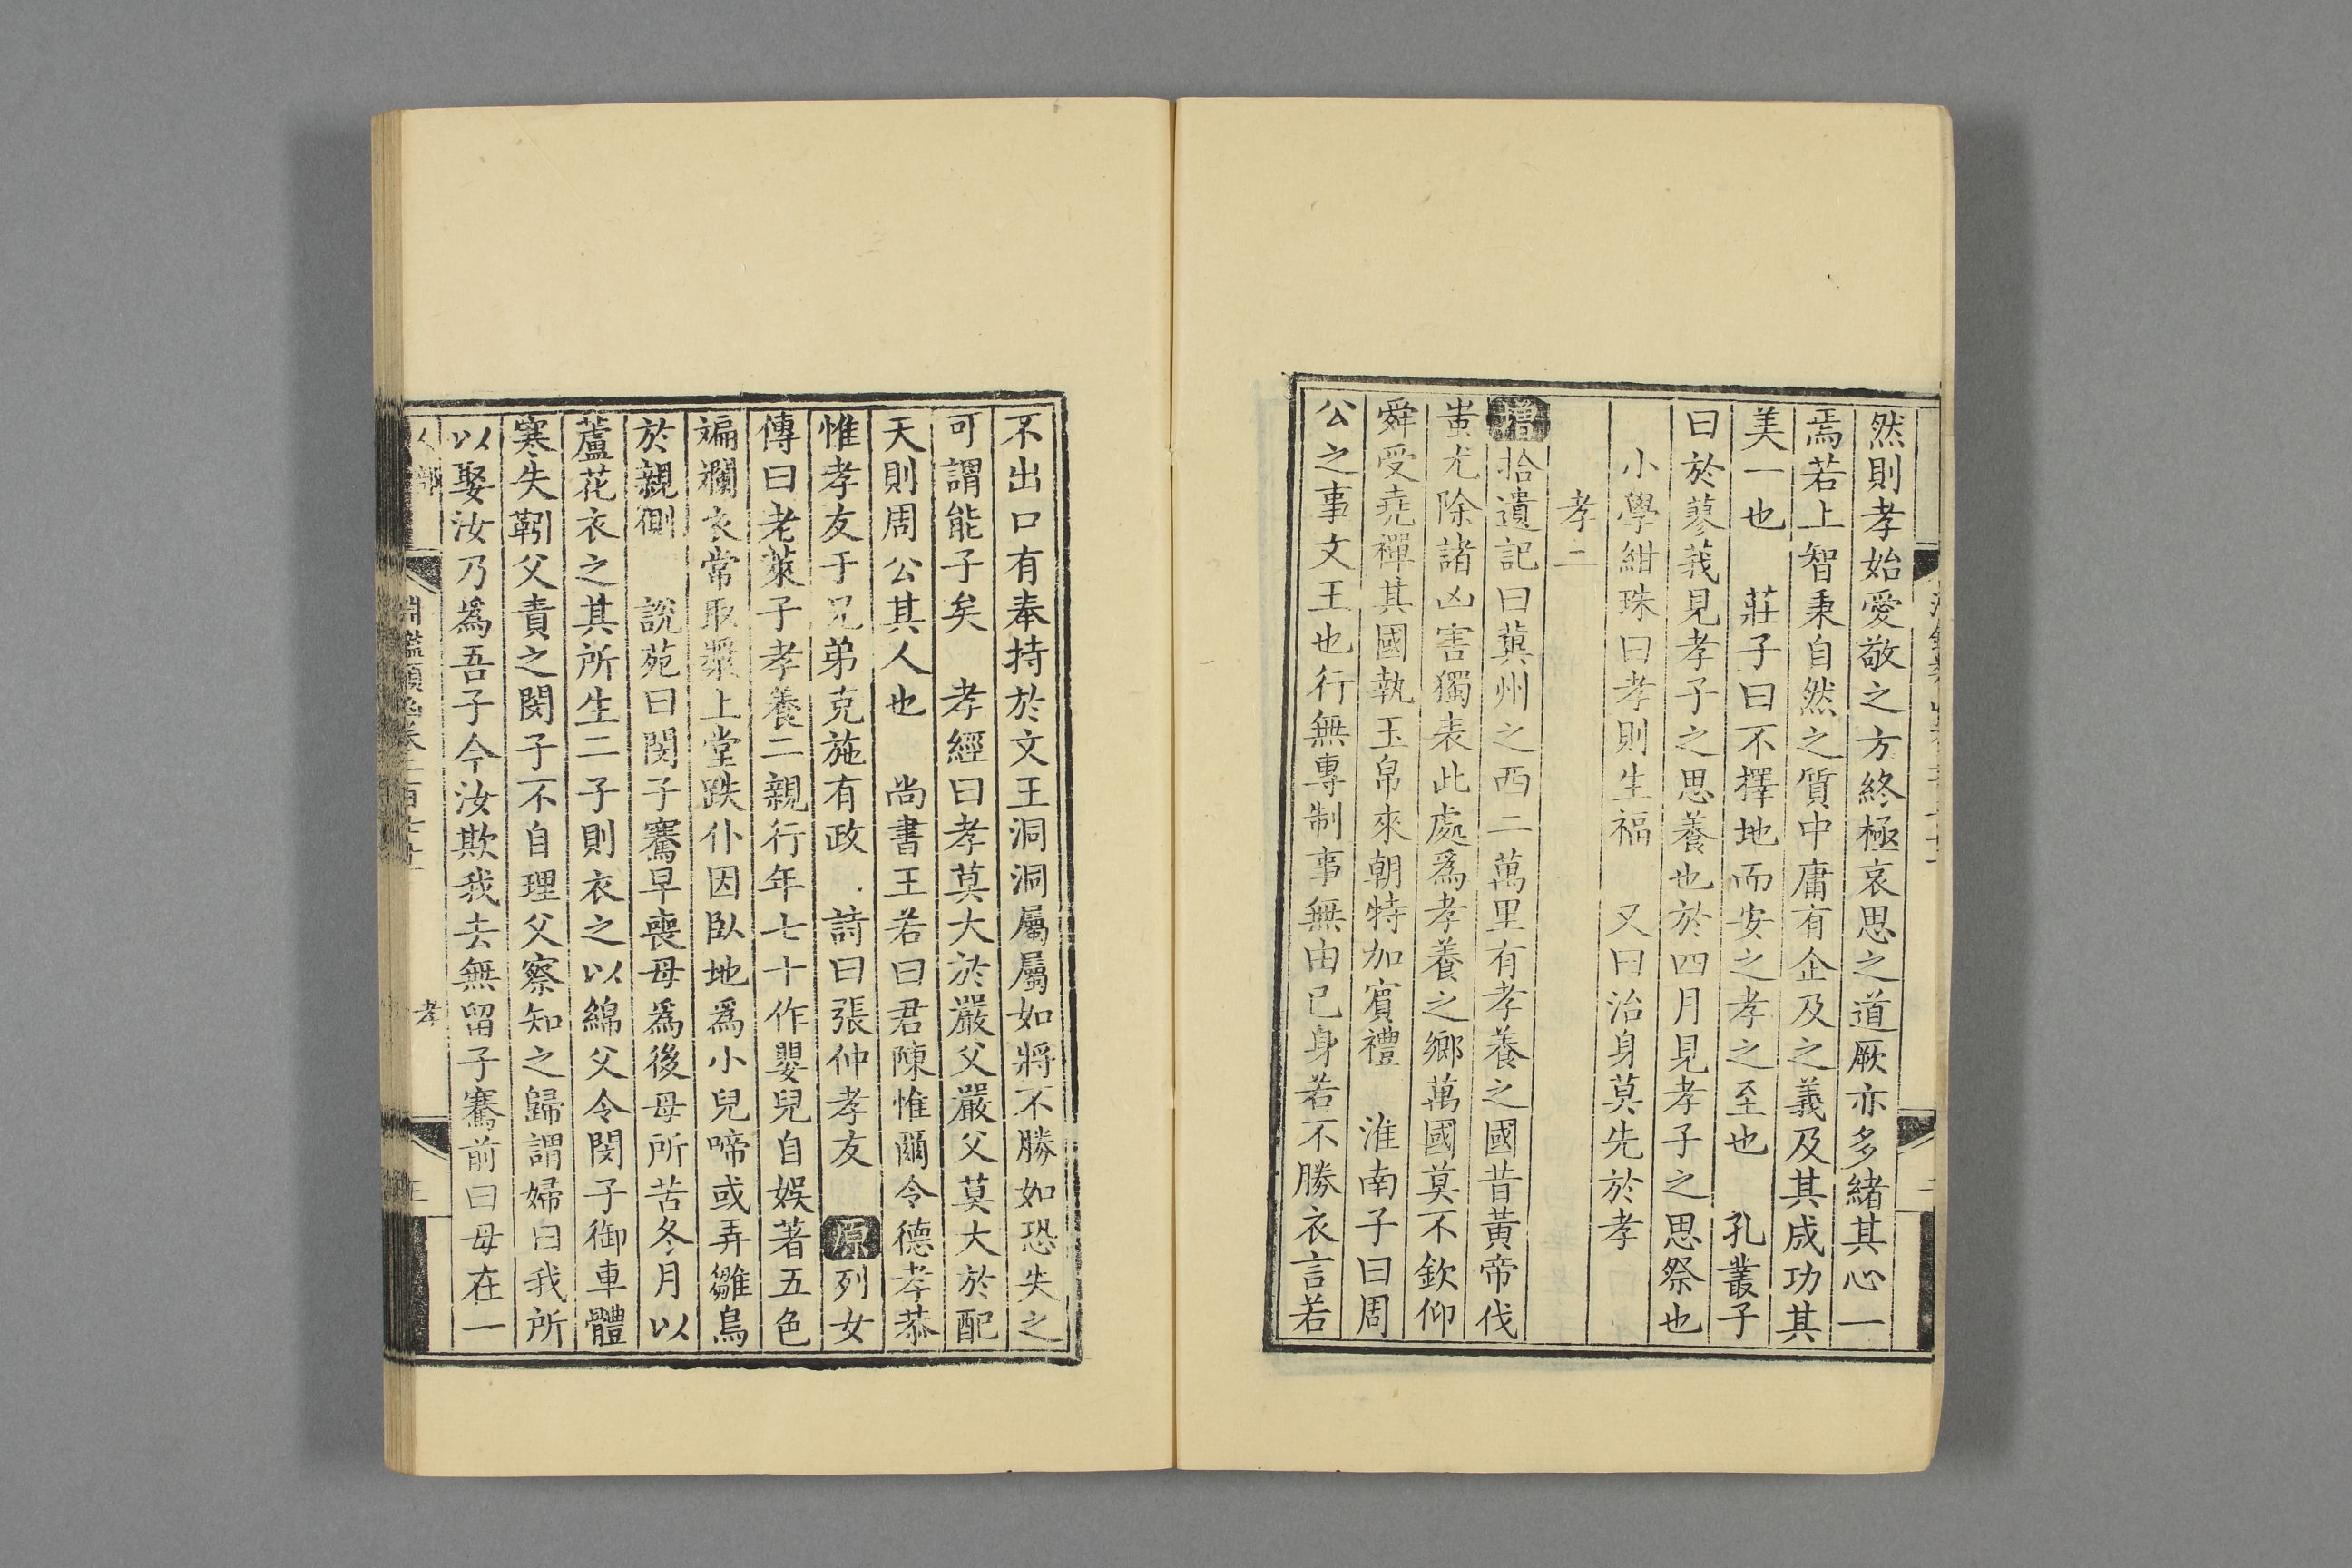 然則孝始愛敬之方終極哀思之道厥亦多緒其心一
焉若上智秉自然之質中庸有企及之義及其成功其
美一也　莊子曰不擇地而安之孝之至也　孔叢子
曰於蓼莪見孝子之思養也於四月見孝子之思祭也
小學紺珠曰孝則生福　又曰治身莫先於孝
孝二
增拾遺記曰冀州之西二萬里有孝養之國昔黃帝伐
蚩尤除諸凶害獨表此處爲孝養之鄉萬國莫不欽仰
舜受堯禪其國執玉帛來朝特加賓禮　淮南子曰周
公之事文王也行無專制事無由已身若不勝衣言若
不出口有奉持於文王洞洞屬屬如將不勝如恐失之
可謂能子矣　孝經曰孝莫大於嚴父嚴父莫大於配
天則周公其人也　尚書王若曰君陳惟爾令德孝恭
惟孝友于兄弟克施有政　詩曰張仲孝友　原列女
傳曰老萊子孝養二親行年七十作嬰兒自娛著五色
斒斕衣常取漿上堂跌仆因臥地爲小兒啼或弄雛烏
於親側　說苑曰閔子騫早喪母爲後母所苦冬月以
蘆花衣之其所生二子則衣之以綿父令閔子御車體
寒失靷父責之閔子不自理父察知之歸謂婦曰我所
以娶汝乃爲吾子今汝欺我去無留子騫前曰母在一
人部
淵鑑類函卷二百七十一
孝